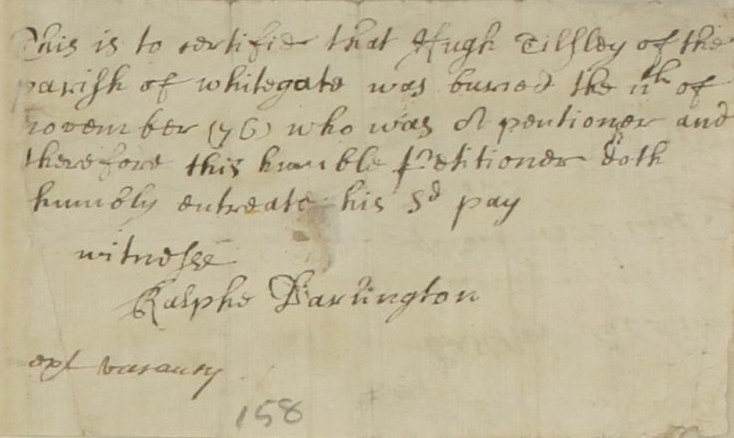 This is to certifie that Hugh Tilsley of the
parish of whitegate was buried the 11th of
november (76) who was A pentioner and
therefore this humble Petitioner doth
humbly entreate his sd pay
witnesse
Ralphe Darlington
ext vacancy
158